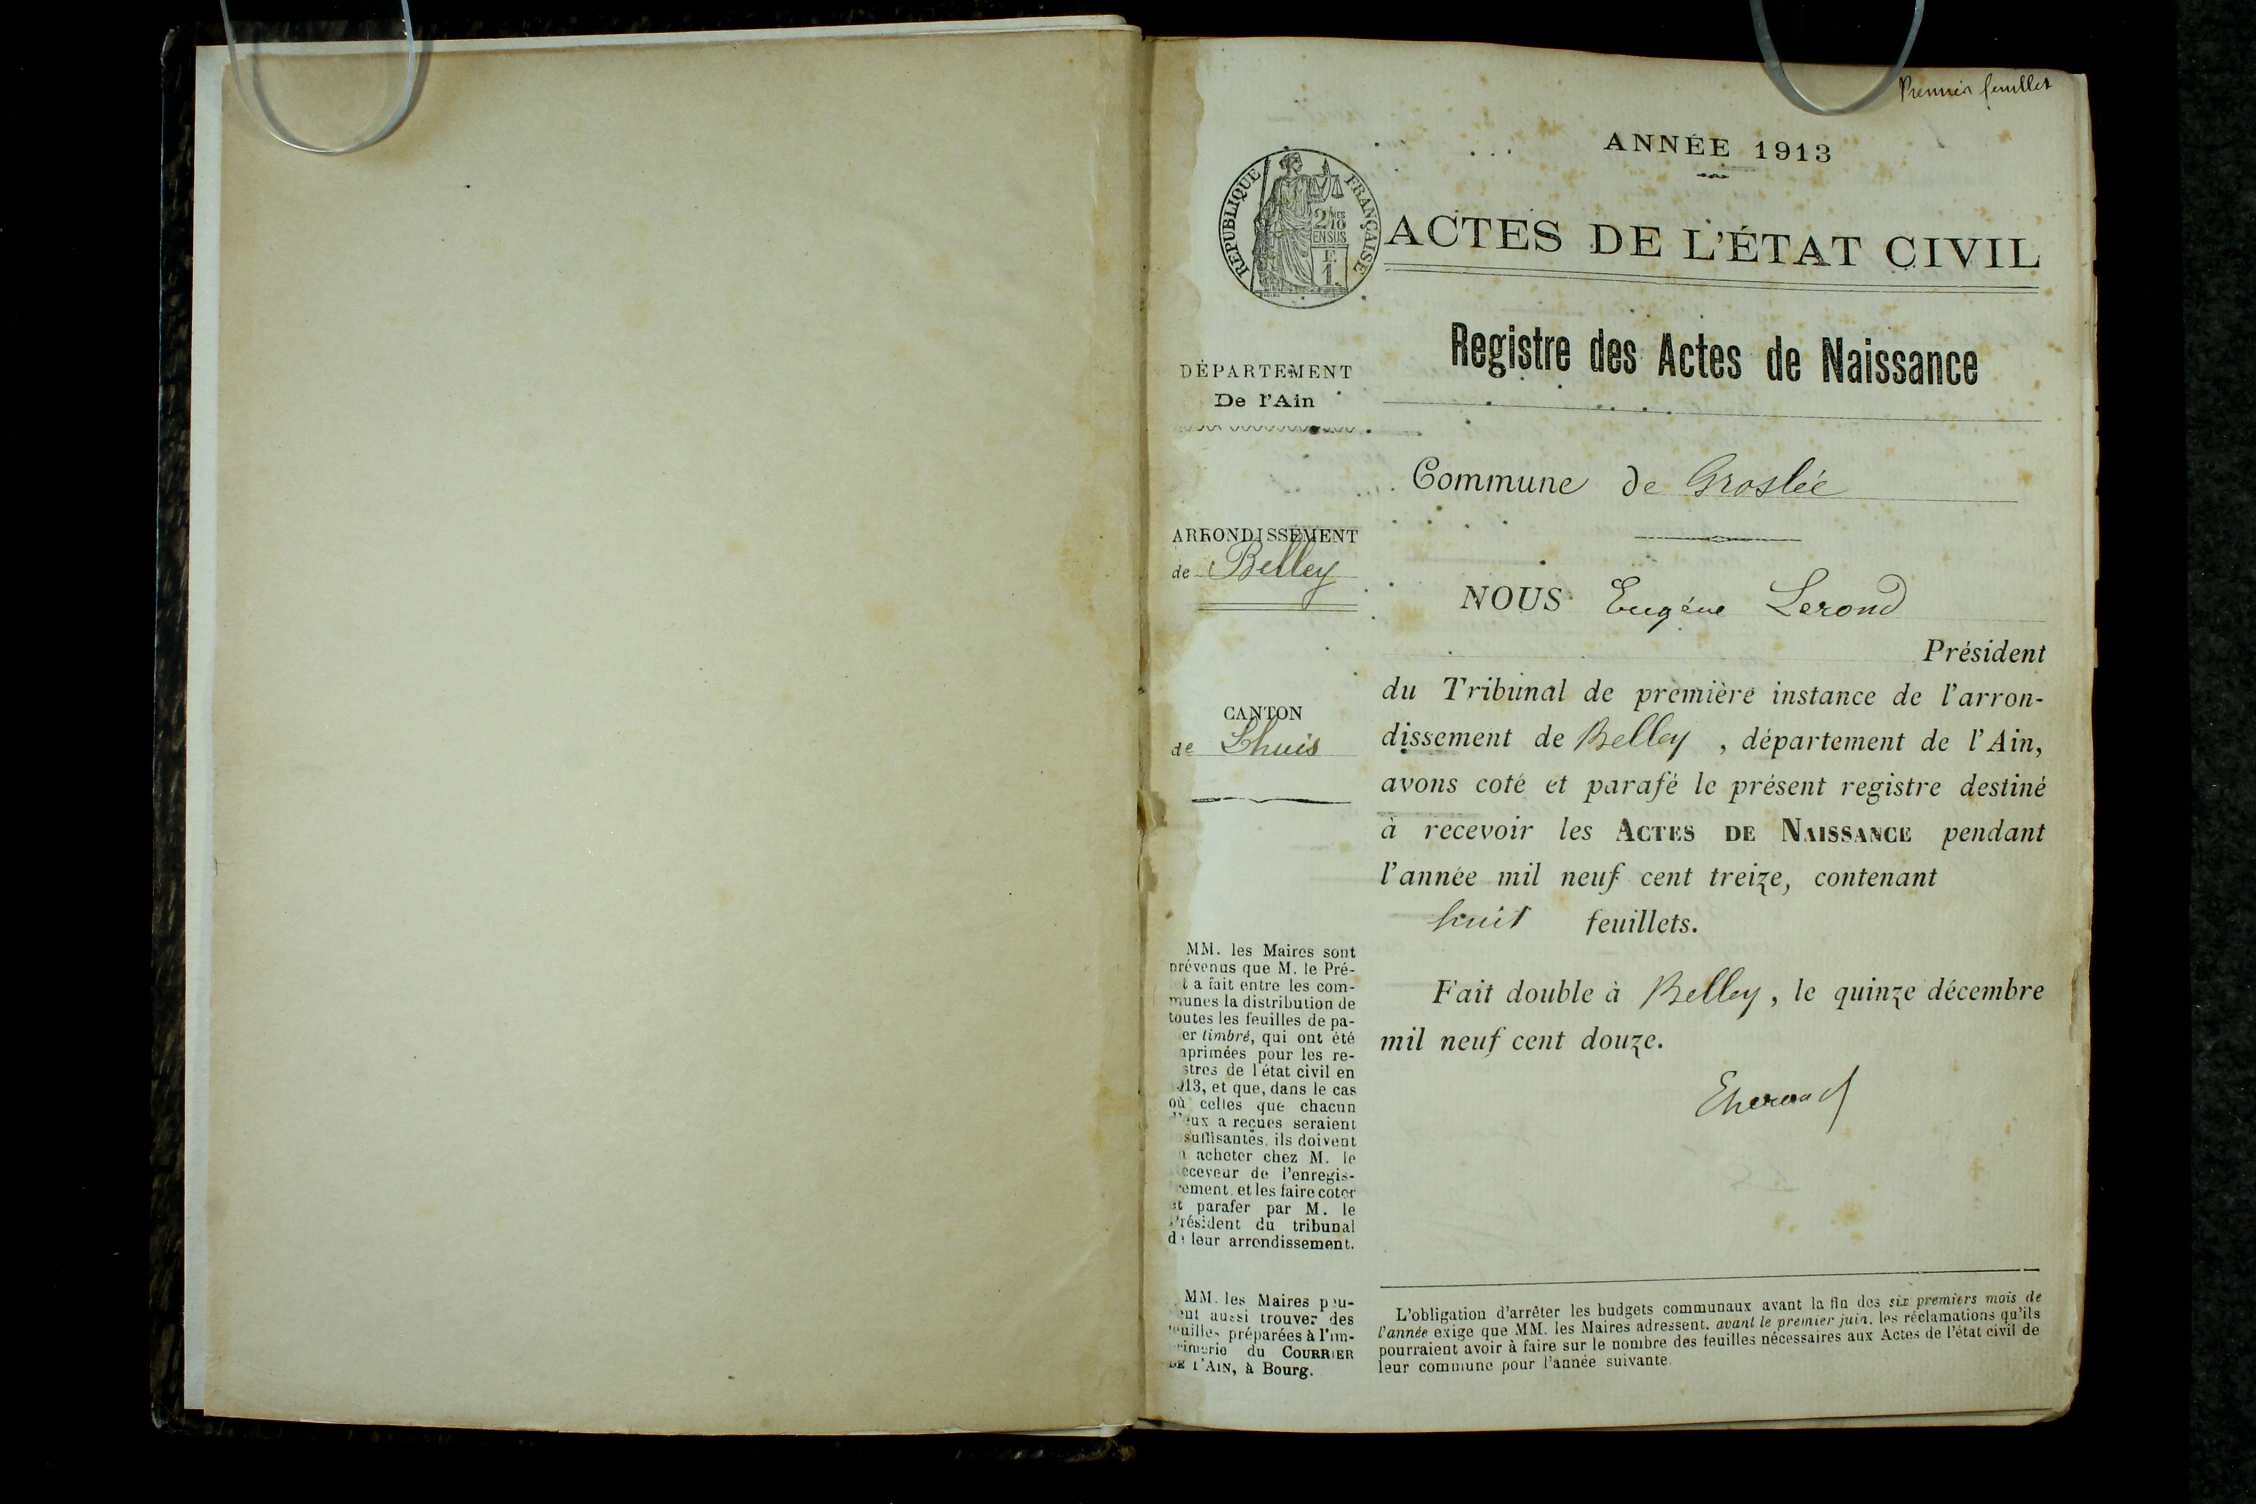 Premier feuillet
ANNÉE 1913
RÉPUBLIQUE FRANÇAISE
2/10MES
EN SUS
F.
1.
ACTES DE L'ÉTAT CIVIL
Registre des Actes de Naissance
DÉPARTEMENT
De l'Ain
ARRONDISSEMENT
de Belley
CANTON
de Lhuis
MM. les Maires sont
prévenus que M. le Pré-
a fait entre les com-
munes la distribution de
toutes les feuilles de pa-
er timbré, qui ont été
mprimées pour les re-
stres de l'état civil en
913, et que, dans le cas
où celles que chacun
d'eux a reçues seraient
suffisantes, ils doivent
acheter chez M. le
eceveur de l'enregis-
rement, et les faire coter
et parafer par M. le
Président du tribunal
de leur arrondissement.
MM. les Maires peu-
ent aussi trouver des
euilles préparées à l'im-
rimerie du COURRIER
DE L'AIN, à Bourg.
Commune de Groslée
NOUS Eugène Lerond
Président
du Tribunal de première instance de l'arron-
dissement de Belley, département de l'Ain,
avons coté et parafé le présent registre destiné
à recevoir les ACTES DE NAISSANCE pendant
l'année mil neuf cent treize, contenant
huit feuillets.
Fait double à Belley, le quinze décembre
mil neuf cent douze.
ELerond
L'obligation d'arrêter les budgets communaux avant la fin des six premiers mois de
l'année exige que MM. les Maires adressent, avant le premier juin, les réclamations qu'ils
pourraient avoir à faire sur le nombre des feuilles nécessaires aux Actes de l'état civil de
leur commune pour l'année suivante.